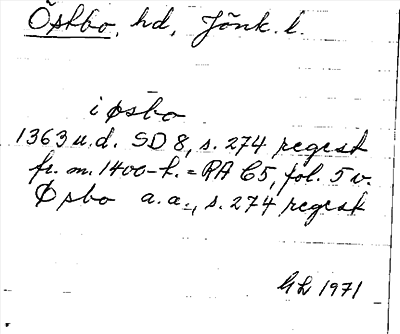 Östbo, hd, Jönk. l.
i øsbo
1363 u.d. SD 8, s. 274 regest
fr. m. 1400-t. = RA C5, fol. 5 v.
Øsbo a.a., s. 274 regest
hL 1971